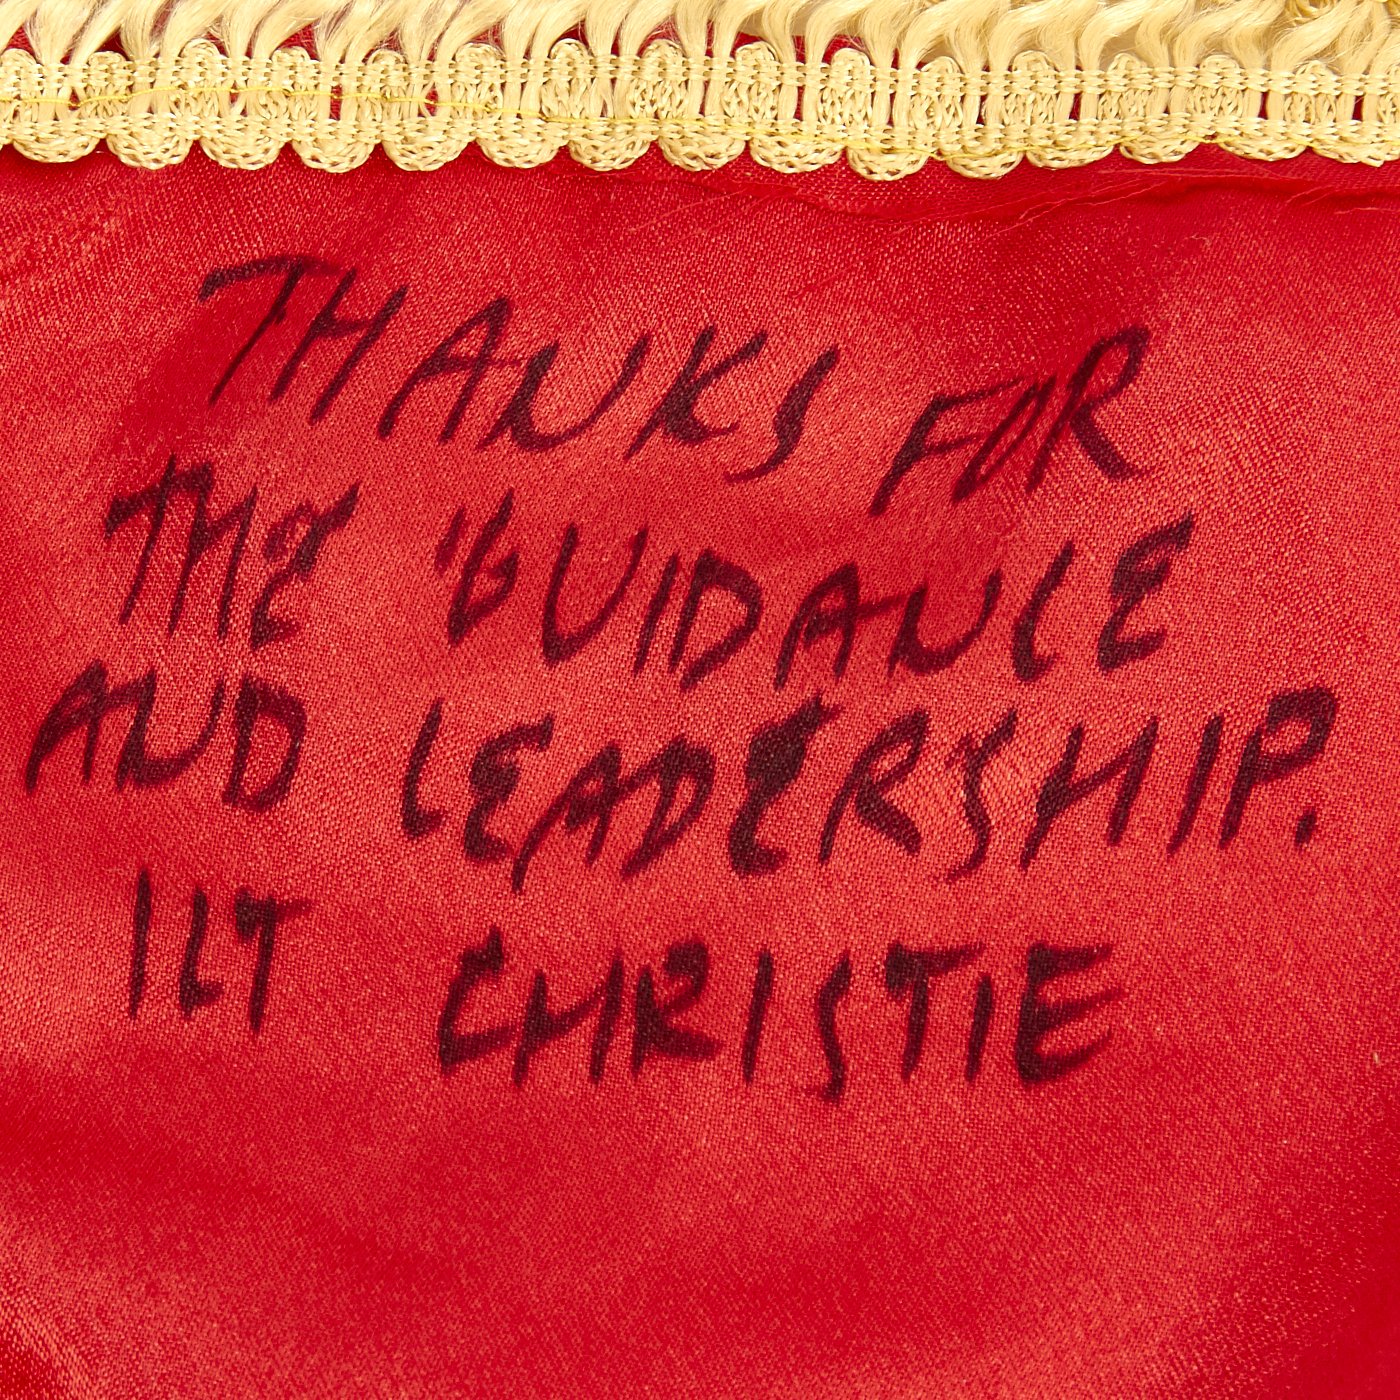 THANKS FOR
THE GUIDANCE
AND LEADERSHIP.
1LT CHRISTIE